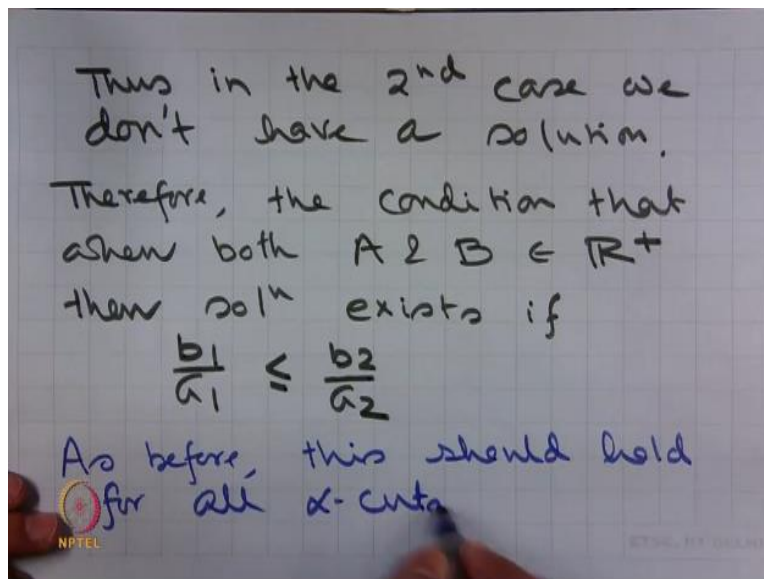 Thus in the 2nd case we
don't have a solution.
Therefore, the condition that
when both A & B ∈ ℝ+
then solⁿ exists if
b1/a1 ≤ b2/a2
As before, this should hold
for all α-cuts
NPTEL